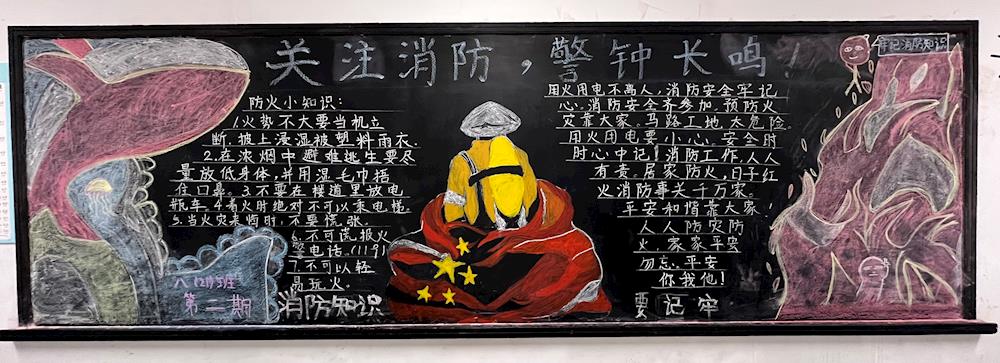 关注消防,警钟长鸣
防火小知识:
1火势不大要当机立
断,披上浸湿被塑料雨衣.
2.在浓烟中避难逃生要尽
量放低身体,并用湿毛巾捂
住口鼻。3.不要在楼道里放电
瓶车.4着火时绝对不可以乘电梯
5.当火灾来临时,不要慌张.
6.不可谎报火
警电话.(119)
7.不可以轻
易玩火.
八(21)班
第二期
消防知识
用火用电不离人,消防安全牢记
心。消防安全齐参加,预防火
灾靠大家。马路工地太危险。
用火用电要小心,安全时
时心中记!消防工作,人人
有责。居家防火,日子红
火消防事关千万家。
平安和楷靠大家!
人人防灾防
火,家家平安
勿忘。平安
你我他!
要记牢
牢记消防知识